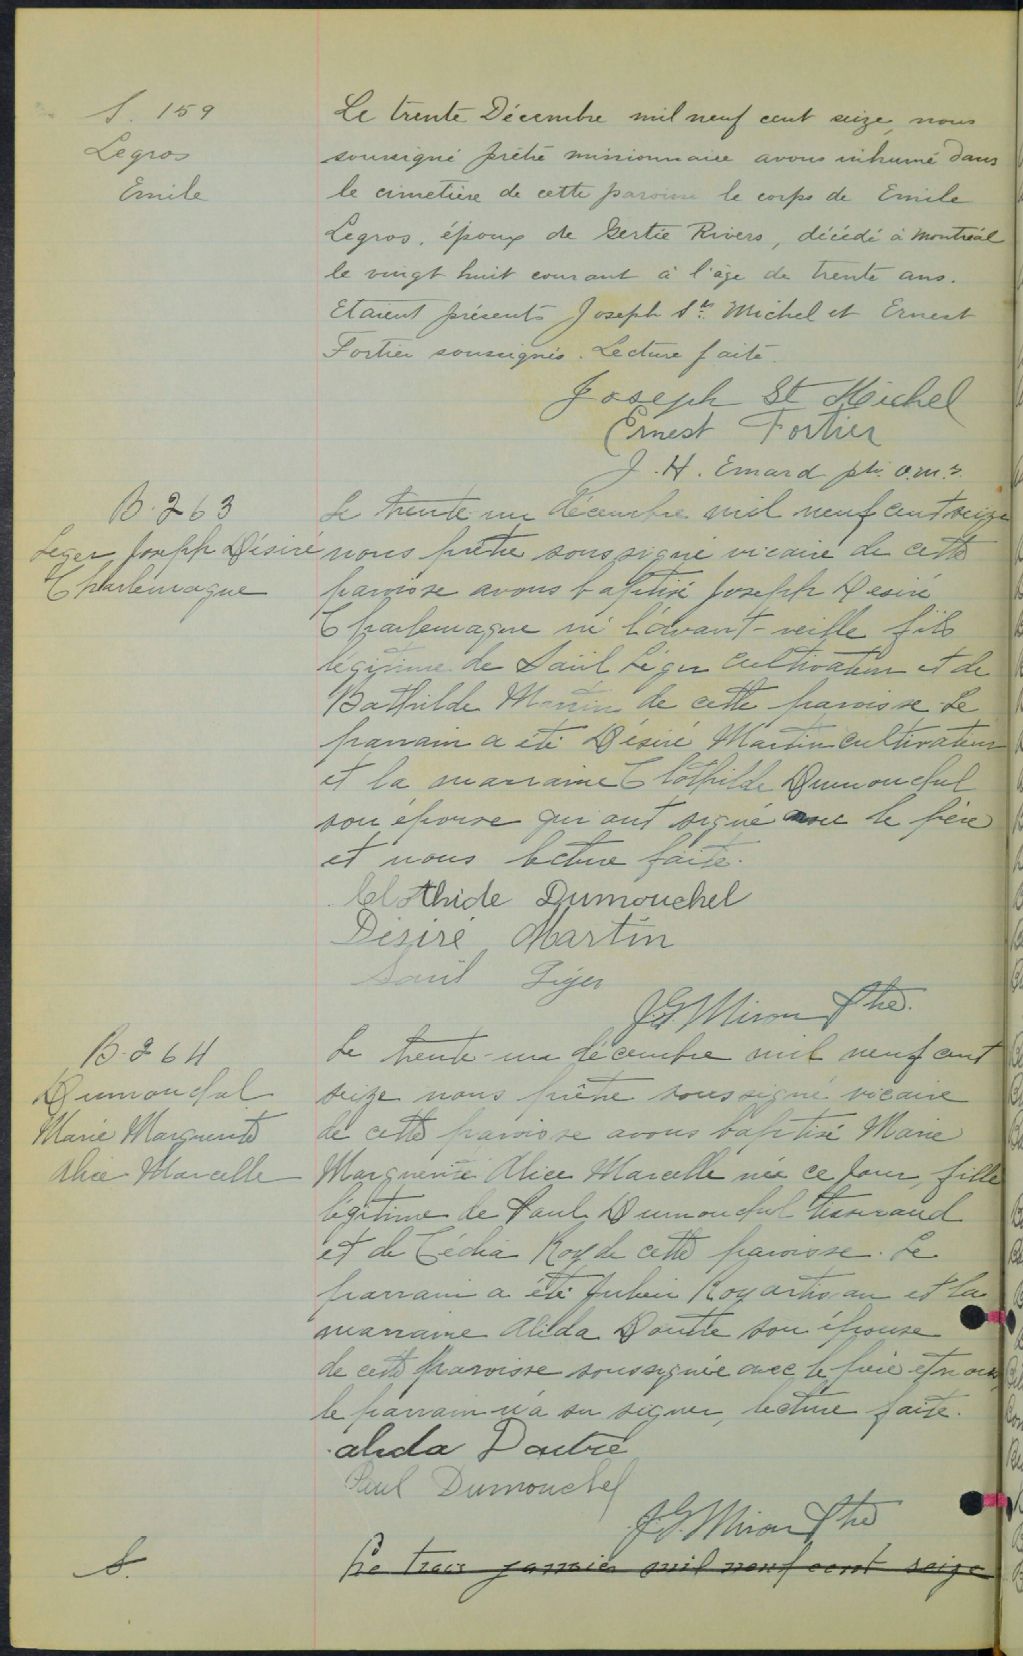 S. 159
Legros
Emile
Le trente Décembre mil neuf cent seize, nous
soussigné prêtre missionnaire avons inhumé dans
le cimetière de cette paroisse le corps de Emile
Legros, époux de Gertie Rivers, décédé à Montréal
le vingt huit courant à l'âge de trente ans.
Etaient présents Joseph St. Michel et Ernest
Fortier soussignés. Lecture faite.
Joseph St Michel
Ernest Fortier
J. H. Emard ptr. o.m.i.
B. 263
Leger Joseph Désiré
Charlemagne
Le trente-un décembre mil neuf cent seize
nous prêtre soussigné vicaire de cette
paroisse avons baptisé Joseph Desiré
Charlemagne né l'avant-veille fils
légitime de Saül Léger cultivateur et de
Bathilde Martin de cette paroisse. Le
parrain a été Désiré Martin cultivateur
et la marraine Clothilde Dumouchel
son épouse qui ont signé avec le père
et nous lecture faite.
Clothide Dumouchel
Désiré Martin
Saül Léger
J.G. Miron Ptre.
B. 264
Dumouchel
Marie Marguerite
Alice Marcelle
Le trente-un décembre mil neuf cent
seize nous prêtre soussigné vicaire
de cette paroisse avons baptisé Marie
Marguerite Alice Marcelle née ce jour, fille
légitime de Paul Dumouchel tisserand
et de Cédia Roy de cette paroisse. Le
parrain a été Julien Roy artisan et la
marraine Alida Doutre son épouse
de cette paroisse soussignée avec le père et nous,
le parrain n'a su signer, lecture faite.
alida Doutre
Paul Dumouchel
J.G. Miron Ptre
S.
Le trois janvier mil neuf cent seize